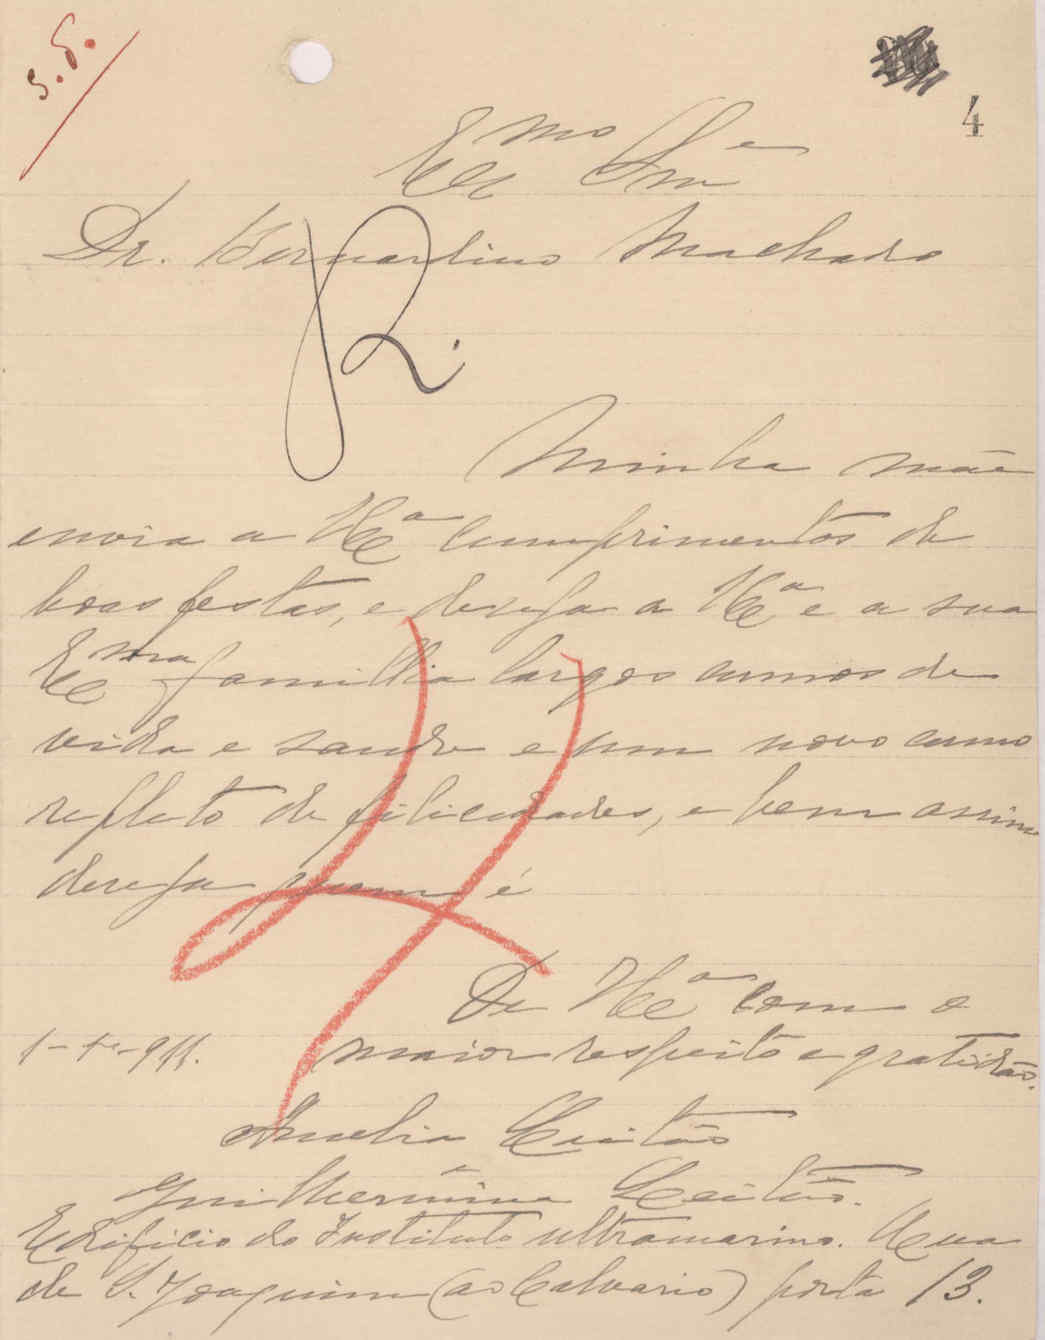 S. G.
4
Exmo Snr
Dr. Bernardino Machado
R.
Minha mãe
envia a V. Exª cumprimentos de
boas festas, e deseja a V. Exª e a sua
Exma familia largos annos de
vida e saude e um novo anno
repleto de filicidades, e bem assim
deseja quem é
De V. Exª com o
1-1º-911. maior respeito e gratidão.
Amelia Leitão
Guilhermina Leitão.
Edificio do Instituto ultramarino. Rua
de S. Joaquim (ao Calvario) porta 13.